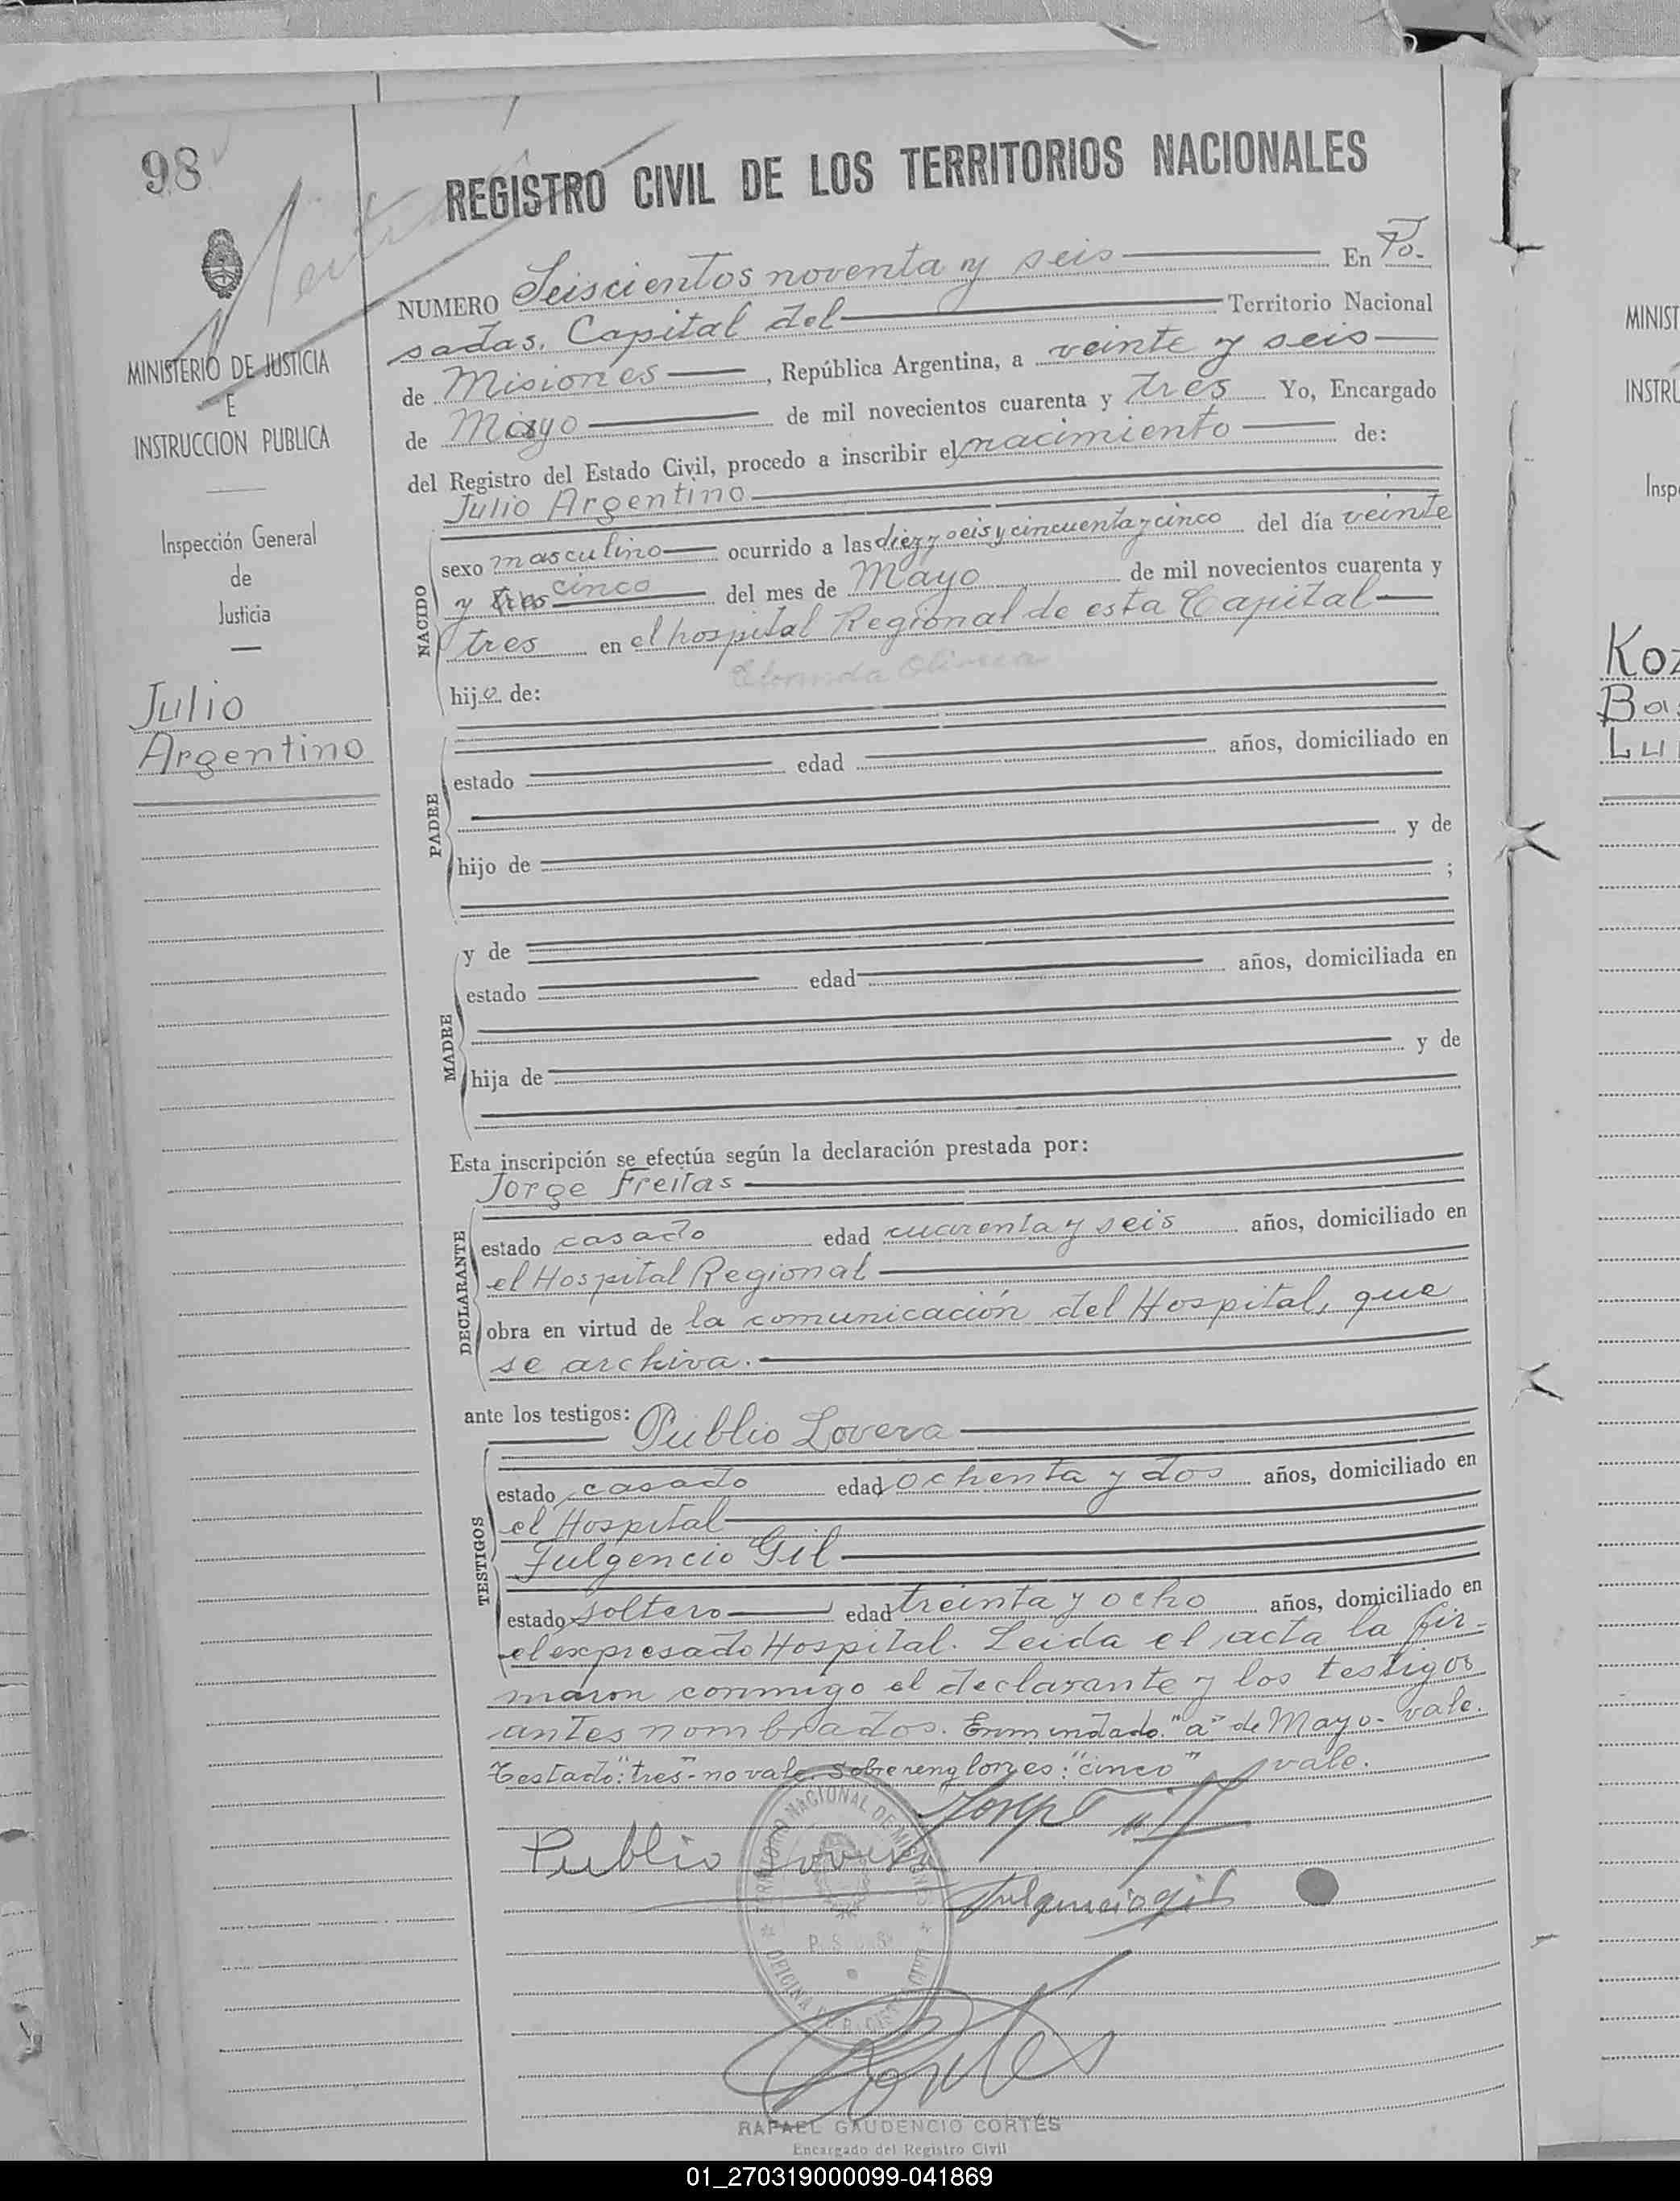 98
REGISTRO CIVIL DE LOS TERRITORIOS NACIONALES
NUMERO Seiscientos noventa y seis En Po-
sadas. Capital del Territorio Nacional
de Misiones, República Argentina, a veinte y seis
de Mayo de mil novecientos cuarenta y tres Yo, Encargado
del Registro del Estado Civil, procedo a inscribir el nacimiento de:
Julio Argentino
NACIDO
sexo masculino ocurrido a las diez y seis y cincuenta y cinco del día veinte
y tres cinco del mes de Mayo de mil novecientos cuarenta y
tres en el hospital Regional de esta Capital
hijo de:
PADRE
estado edad años, domiciliado en
hijo de y de
;
MADRE
y de
estado edad años, domiciliada en
hija de y de
Esta inscripción se efectúa según la declaración prestada por:
Jorge Freitas
DECLARANTE
estado casado edad cuarenta y seis años, domiciliado en
el Hospital Regional
obra en virtud de la comunicación del Hospital, que
se archiva.
ante los testigos: Publio Lovera
TESTIGOS
estado casado edad ochenta y dos años, domiciliado en
el Hospital
Fulgencio Gil
estado soltero edad treinta y ocho años, domiciliado en
el expresado Hospital. Leida el acta la fir-
maron conmigo el declarante y los testigos
antes nombrados. Enmendado "a" de Mayo- vale.
Testado: "tres"- no vale. Sobrerenglones: "cinco" vale.
Publio Lovera
Fulgencio gil
TERRITORIO NACIONAL DE MISIONES
OFICINA DE REGISTRO CIVIL
Cortes
RAFAEL GAUDENCIO CORTÉS
Encargado del Registro Civil
MINISTERIO DE JUSTICIA
E
INSTRUCCION PUBLICA
Inspección General
de
Justicia
Julio
Argentino
MINIST
INSTRU
Inspe
Koz
Bas
Lui
01_270319000099-041869